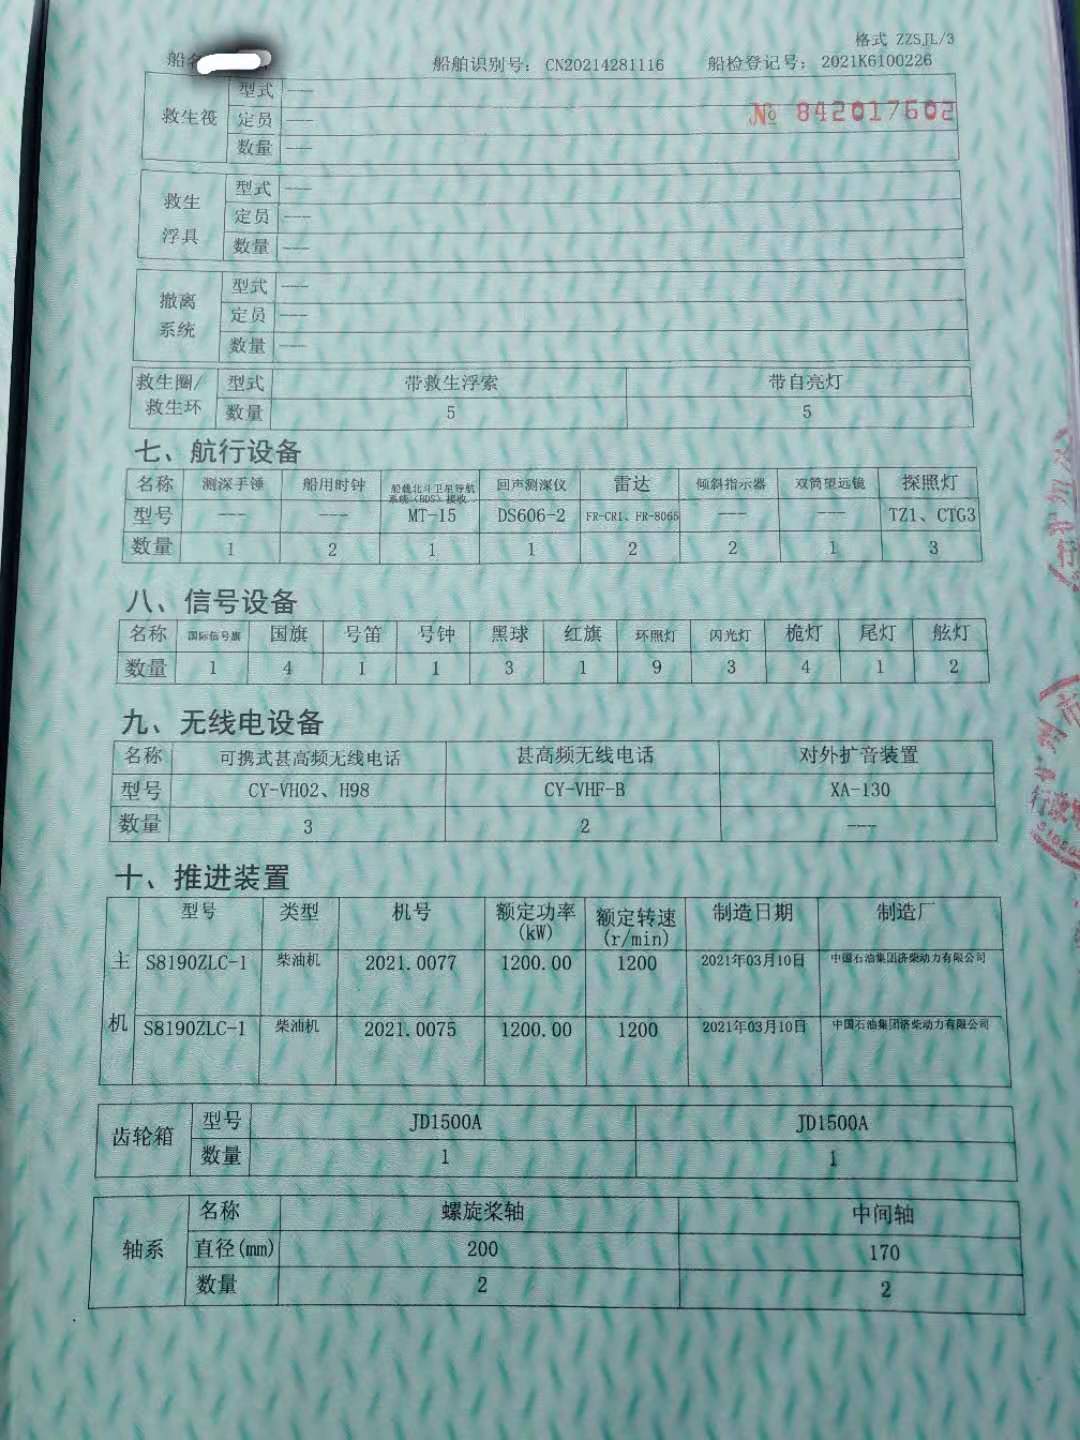 格式 ZZSJL/3
船名 船舶识别号：CN20214281116 船检登记号：2021K6100226
№ 842017602
救生筏 型式 ---
定员 ---
数量 ---
救生浮具 型式 ---
定员 ---
数量 ---
撤离系统 型式 ---
定员 ---
数量 ---
救生圈/救生环 型式 带救生浮索 带自亮灯
数量 5 5
七、航行设备
名称 测深手锤 船用时钟 船载北斗卫星导航系统(BDS)接收.. 回声测深仪 雷达 倾斜指示器 双筒望远镜 探照灯
型号 --- --- MT-15 DS606-2 FR-CR1、FR-8065 --- --- TZ1、CTG3
数量 1 2 1 1 2 2 1 3
八、信号设备
名称 国际信号旗 国旗 号笛 号钟 黑球 红旗 环照灯 闪光灯 桅灯 尾灯 舷灯
数量 1 4 1 1 3 1 9 3 4 1 2
九、无线电设备
名称 可携式甚高频无线电话 甚高频无线电话 对外扩音装置
型号 CY-VH02、H98 CY-VHF-B XA-130
数量 3 2 ---
十、推进装置
主机 型号 类型 机号 额定功率(kW) 额定转速(r/min) 制造日期 制造厂
S8190ZLC-1 柴油机 2021.0077 1200.00 1200 2021年03月10日 中国石油集团济柴动力有限公司
S8190ZLC-1 柴油机 2021.0075 1200.00 1200 2021年03月10日 中国石油集团济柴动力有限公司
齿轮箱 型号 JD1500A JD1500A
数量 1 1
轴系 名称 螺旋桨轴 中间轴
直径(mm) 200 170
数量 2 2